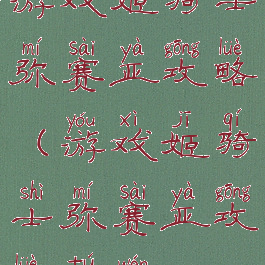 游戏姬骑士
mí sài yà gōng lüè
弥赛亚攻略
yóu xì jī qí
（游戏姬骑
shì mí sài yà gōng
士弥赛亚攻